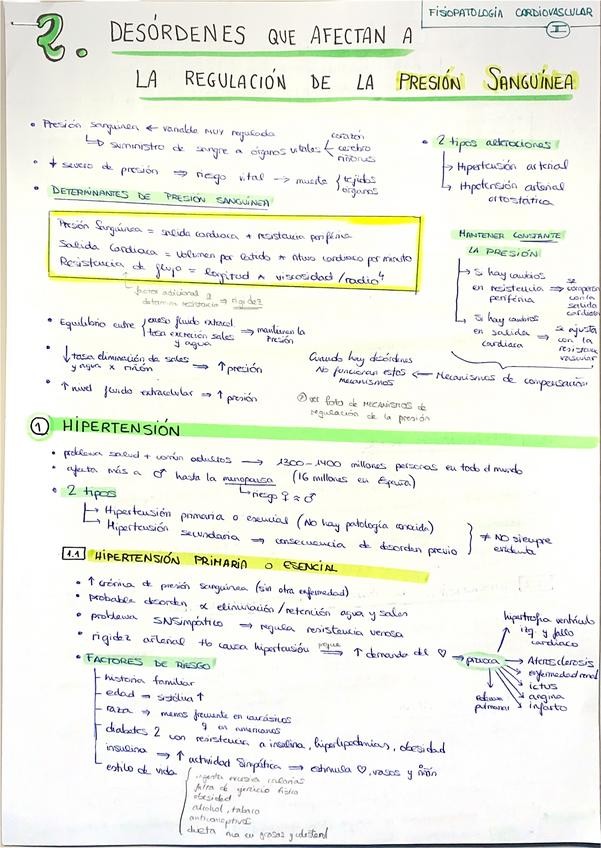 FISIOPATOLOGÍA CARDIOVASCULAR
I
2. DESÓRDENES QUE AFECTAN A
LA REGULACIÓN DE LA PRESIÓN SANGUÍNEA
• Presión sanguínea ← variable MUY regulada
↳ suministro de sangre a órganos vitales < corazón
cerebro
riñones
• ↓ severo de presión → riesgo vital → muerte { tejidos
órganos
• 2 tipos alteraciones
↳ Hipertensión arterial
↳ Hipotensión arterial
ortostática
• DETERMINANTES DE PRESIÓN SANGUÍNEA
Presión Sanguínea = salida cardiaca * resistencia periférica
Salida Cardiaca = Volumen por latido * ritmo cardiaco por minuto
Resistencia de flujo = longitud * viscosidad / radio⁴
factor adicional q
determina resistencia → rigidez
MANTENER CONSTANTE
LA PRESIÓN
→ Si hay cambios
en resistencia ⇒ se compensa
periférica con la
salida
cardiaca
→ Si hay cambios
en salida ⇒ se ajusta
cardiaca con la
resistencia
vascular
• Equilibrio entre { fluido extracel
tasa excreción sales
y agua ⇒ mantienen la
presión
• ↓ tasa eliminación de sales
y agua x riñón ⇒ ↑ presión
• ↑ nivel fluido extracelular ⇒ ↑ presión
Cuando hay desórdenes
No funcionan estos ← Mecanismos de compensación
mecanismos
ver foto de MECANISMOS de
regulación de la presión
1 HIPERTENSIÓN
• problema salud + común adultos → 1300-1400 millones personas en todo el mundo
• afecta más a ♂ hasta la menopausa (16 millones en España)
↳ riesgo ♀ = ♂
• 2 tipos
↳ Hipertensión primaria o esencial (No hay patología conocida)
↳ Hipertensión secundaria ⇒ consecuencia de desorden previo } ≠ NO siempre
evidente
1.1 HIPERTENSIÓN PRIMARIA O ESENCIAL
• ↑ crónica de presión sanguínea (sin otra enfermedad)
• probable desorden x eliminación/retención agua y sales
• problema SNSimpático ⇒ regula resistencia venosa
• rigidez arterial tb causa hipertensión ⇒ ↑ demanda del ♡ → provoca
hipertrofia ventrículo
izq y fallo
cardiaco
→ Aterosclerosis
→ enfermedad renal
→ ictus
→ angina
→ infarto
edema
pulmonar
• FACTORES DE RIESGO
historia familiar
edad → sistólica ↑
raza → menos frecuente en caucásicos
q en americanos
diabetes 2 con resistencia a insulina, hiperlipidemias, obesidad
insulina ⇒ ↑ actividad Simpática ⇒ estimula ♡, vasos y riñón
estilo de vida
ingesta excesiva calorías
falta de ejercicio físico
obesidad
alcohol, tabaco
anticonceptivos
dieta rica en grasas y colesterol